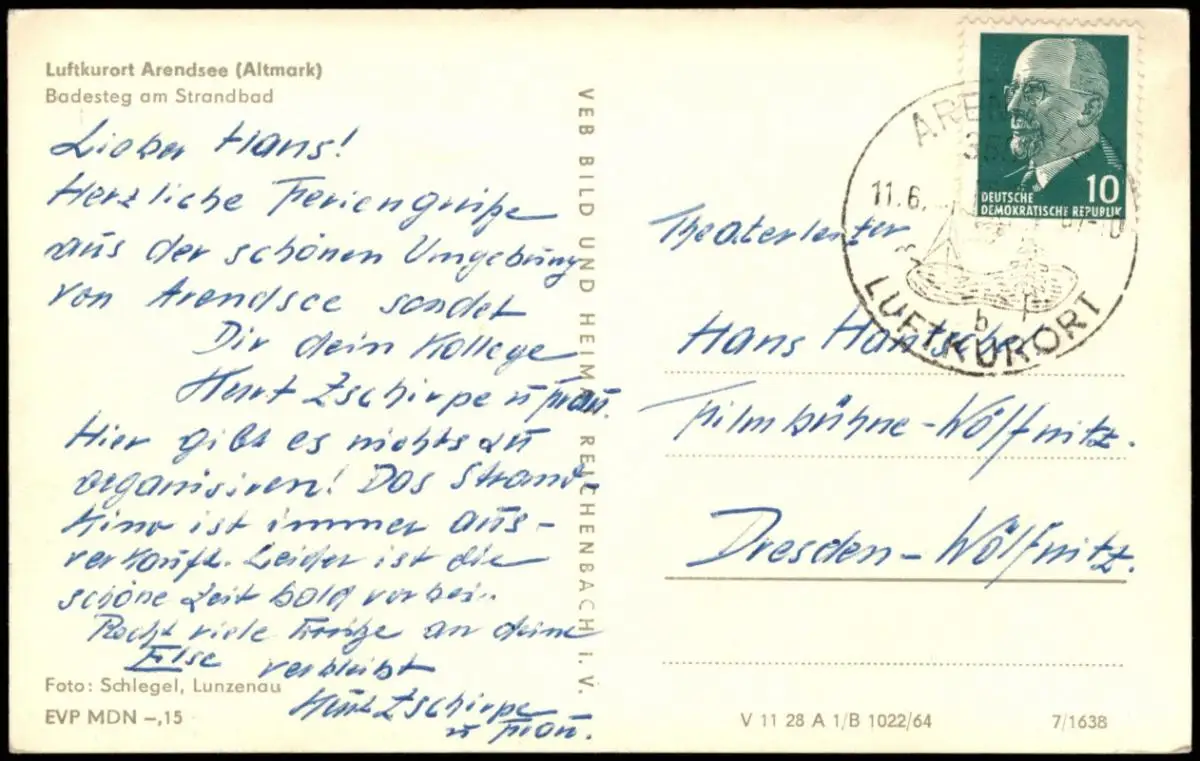 Luftkurort Arendsee (Altmark)
Badesteg am Strandbad
Lieber Hans!
Herzliche Feriengrüße
aus der schönen Umgebung
von Arendsee sendet
Dir dein Kollege
Kurt Zschirpe u Frau.
Hier gibt es nichts zu
organisiren! Das Strand-
Kino ist immer aus-
verkauft. Leider ist die
schöne Zeit bald vorbei.
Recht viele Grüße an deine
Else verbleibt
Kurt Zschirpe
u Frau.
Foto: Schlegel, Lunzenau
EVP MDN –,15
VEB BILD UND HEIMAT REICHENBACH I. V.
DEUTSCHE
DEMOKRATISCHE REPUBLIK
10
11.6.
LUFTKURORT
b
Theaterleiter
Hans
Filmbühne-Wölfnitz.
Dresden-Wölfnitz.
V 11 28 A 1/B 1022/64
7/1638